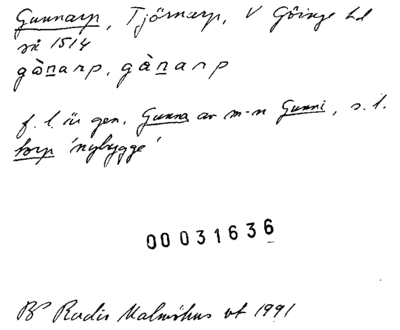 Gunnarp, Tjörnarp, V Göinge hd
så 1514
gònarp, gànarp
f. l. är gen. Gunna av m-n Gunni, s. l.
torp 'nybygge'
00031636
Radio Malmöhus vt 1991